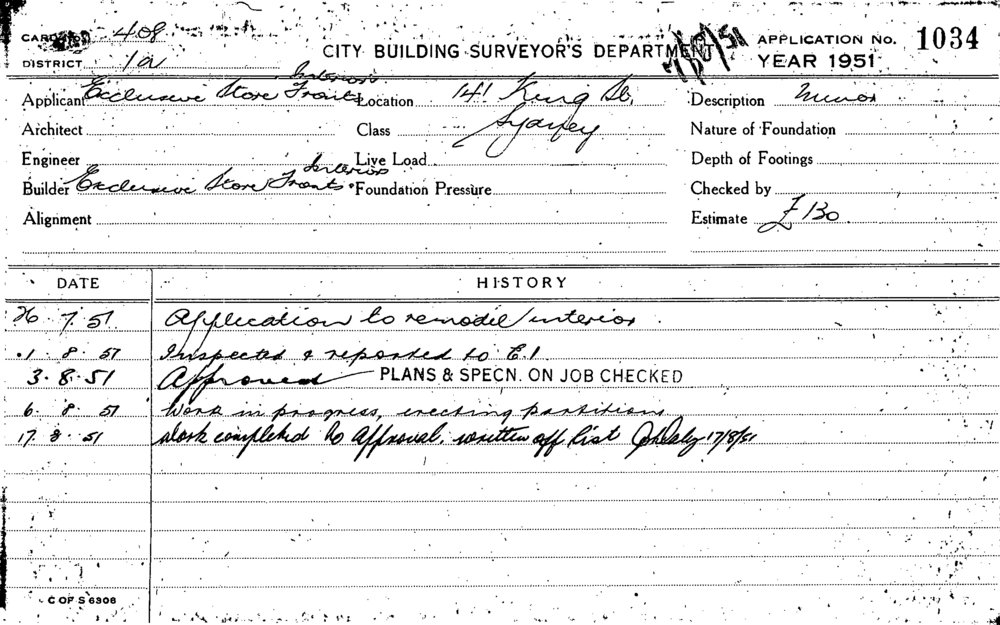 CARD No. 408
DISTRICT 1a
CITY BUILDING SURVEYOR'S DEPARTMENT
APPLICATION No. 1034
YEAR 1951
Applicant Exclusive Store Fronts Interiors
Location 141 King St. Sydney
Description Minor
Architect
Class
Nature of Foundation
Engineer
Live Load
Depth of Footings
Builder Exclusive Store Fronts Interiors
Foundation Pressure
Checked by
Alignment
Estimate £130
DATE HISTORY
26 7 51 Application to remodel interior
1 8 51 Inspected & reported to E.1.
3.8.51 Approved PLANS & SPECN. ON JOB CHECKED
6 8 51 Work in progress, erecting partitions
17 8 51 Work completed to approval, written off list 17/8/51
C OF S 6306